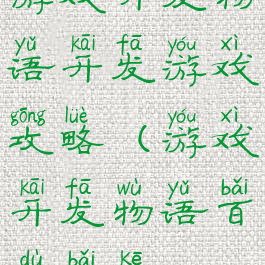 游戏开发物
yǔ kāi fā yóu xì
语开发游戏
gōng lüè yóu xì
攻略（游戏
kāi fā wù yǔ bǎi
开发物语百
dù bǎi kē